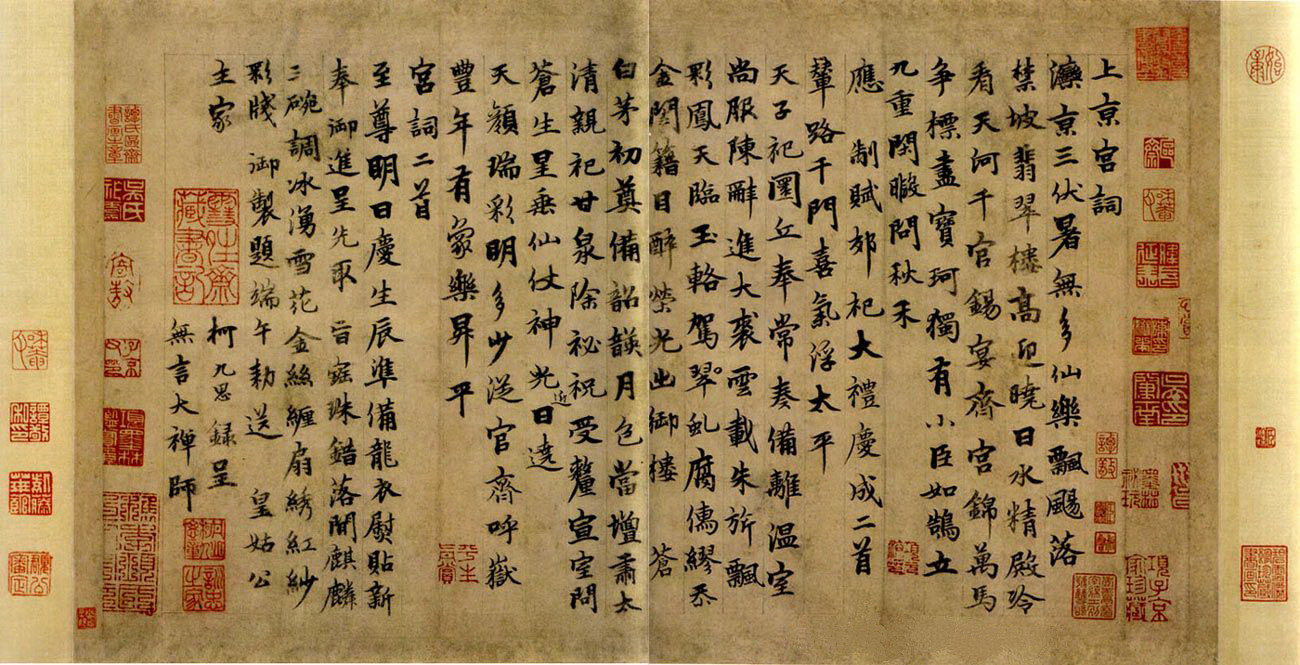 上亰宮詞
灤亰三伏暑無多仙樂飄颺落
禁坡翡翠樓高迎曉日水精殿冷
看天河千官錫宴齊宮錦萬馬
爭標盡寶珂獨有小臣如鵠立
九重閒暇問秋禾
應 制賦郊祀大禮慶成二首
輦路千門喜氣浮太平
天子祀圜丘奉常奏備離溫室
尚服陳辭進大裘雲載朱旂飄
彩鳳天臨玉輅駕翠虬腐儒繆忝
金閨籍目醉榮光出御樓 蒼
白茅初奠備韶韺月色當壇肅太
清親祀甘泉除祕祝受釐宣室問
蒼生星垂仙仗神光近日達
天顏瑞彩明多少從官齊呼嶽
豐年有象樂昇平
宮詞二首
至尊明日慶生辰準備龍衣熨貼新
奉御進呈先取 旨 珠錯落閒麒麟
三碗調冰湧雪花金絲纏扇綉紅紗
彩牋 御製題端午勅送 皇姑公
主家 柯九思録呈
無言大禪師
項子京家珍藏